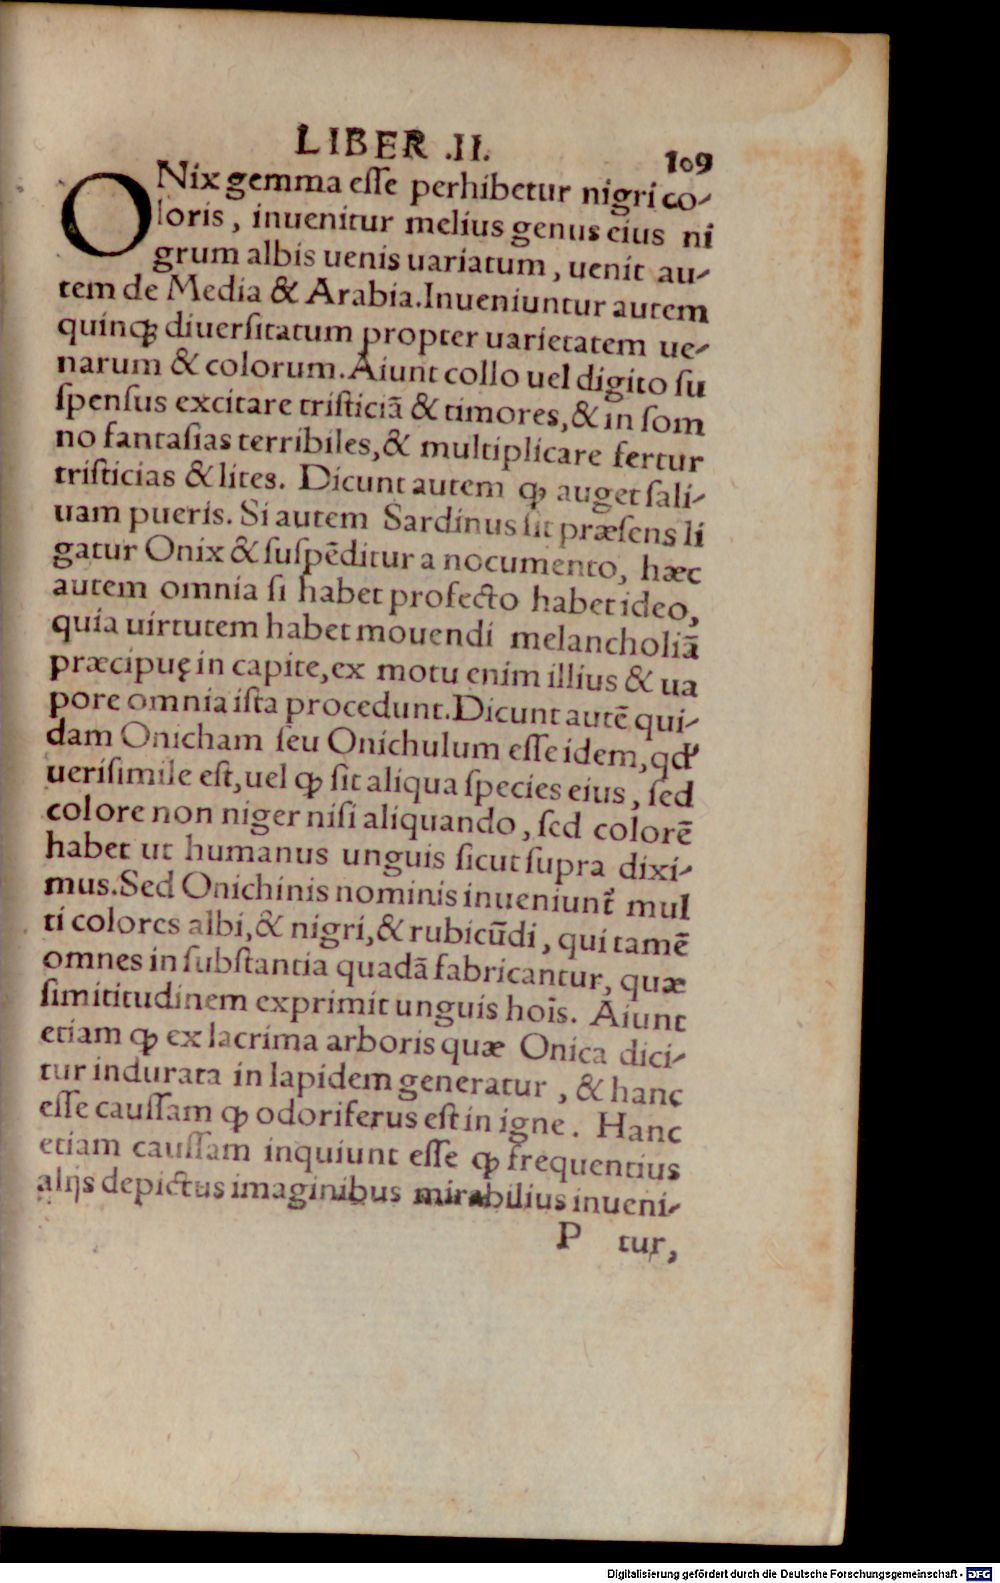 LIBER .II. 109
ONix gemma esse perhibetur nigri co-
loris, inuenitur melius genus eius ni
grum albis uenis uariatum, uenit au-
tem de Media & Arabia.Inueniuntur autem
quinqꝫ diuersitatum propter uarietatem ue-
narum & colorum.Aiunt collo uel digito su
spensus excitare tristiciā & timores,& in som
no fantasias terribiles,& multiplicare fertur
tristicias & lites. Dicunt autem ꝙ auget sali-
uam pueris. Si autem Sardinus sit præsens li
gatur Onix & suspēditur a nocumento, hæc
autem omnia si habet profecto habet ideo,
quia uirtutem habet mouendi melancholiā
præcipuę in capite,ex motu enim illius & ua
pore omnia ista procedunt.Dicunt autē qui-
dam Onicham seu Onichulum esse idem,qđ
uerisimile est,uel ꝙ sit aliqua species eius, sed
colore non niger nisi aliquando, sed colorē
habet ut humanus unguis sicut supra dixi-
mus.Sed Onichinis nominis inueniunt᷑ mul
ti colores albi,& nigri,& rubicūdi, qui tamē
omnes in substantia quadā fabricantur, quæ
simititudinem exprimit unguis hoīs. Aiunt
etiam ꝙ ex lacrima arboris quæ Onica dici-
tur indurata in lapidem generatur, & hanc
esse caussam ꝙ odoriferus est in igne. Hanc
etiam caussam inquiunt esse ꝙ frequentius
alijs depictus imaginibus mirabilius inueni-
P tur,
Digitalisierung gefördert durch die Deutsche Forschungsgemeinschaft - DFG